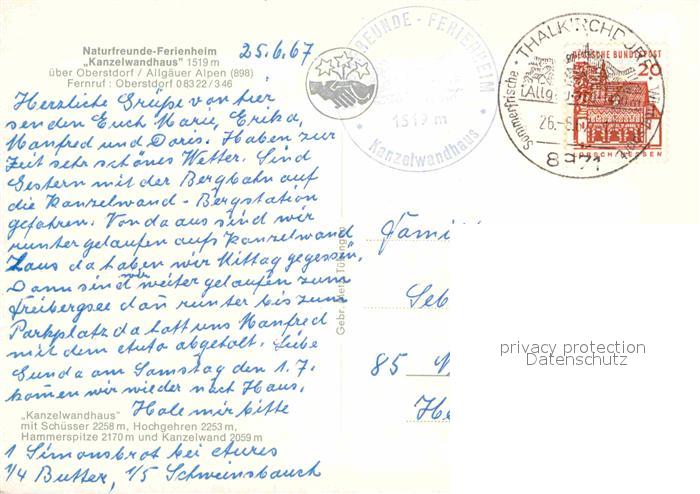 Naturfreunde-Ferienheim
„Kanzelwandhaus" 1519 m
über Oberstdorf / Allgäuer Alpen (898)
Fernruf: Oberstdorf 08322/346
25.6.67
Herzliche Grüße von hier
senden Euch Marie, Erika,
Manfred und Doris. Haben zur
Zeit sehr schönes Wetter. Sind
Gestern mit der Bergbahn auf
die Kanzelwand-Bergstation
gefahren. Von da aus sind wir
runter gelaufen aufs Kanzelwand
Haus da haben wir Mittag gegessen,
Dann sind wir weiter gelaufen zum
Freibergsee dañ runter bis zum
Parkplatz da hatt uns Manfred
mit dem Auto abgeholt. Liebe
Gunda am Samstag den 1.7.
kom̃en wir wieder nach Haus,
Hole mir bitte
„Kanzelwandhaus"
mit Schüsser 2258 m, Hochgehren 2253 m,
Hammerspitze 2170 m und Kanzelwand 2059 m
1 Simonsbrot bei
1/4 Butter, 1/5 Schweinsbauch
FREUNDE - FERIENHEIM
1519 m
Kanzelwandhaus
THALKIRCHDORF
(Allgäu)
26.-6.
Sommerfrische
8971
DEUTSCHE BUNDESPOST
20
LORSCH/HESSEN
Gebr. Metz Tübingen
Fami
Seb
85 N
He
privacy protection
Datenschutz